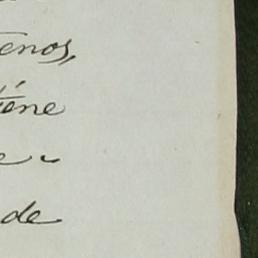 enos,
iéne
e-
de